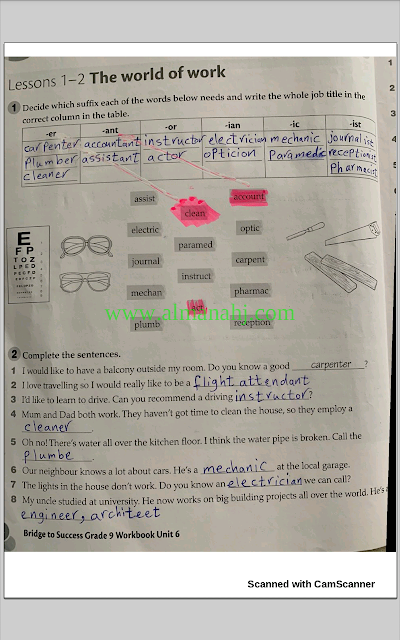 Lessons 1–2 The world of work
1 Decide which suffix each of the words below needs and write the whole job title in the
correct column in the table.
-er -ant -or -ian -ic -ist
carpenter accountant instructor electrician mechanic journalist
Plumber assistant actor opticion Paramedic receptionist
cleaner Pharmacist
assist account
clean
electric optic
paramed
journal carpent
instruct
mechan pharmac
act
www.almanahj.com
plumb reception
E
F P
T O Z
L P E D
P E C F D
2 Complete the sentences.
1 I would like to have a balcony outside my room. Do you know a good carpenter ?
2 I love travelling so I would really like to be a flight attendant
3 I'd like to learn to drive. Can you recommend a driving instructor?
4 Mum and Dad both work. They haven't got time to clean the house, so they employ a
cleaner .
5 Oh no! There's water all over the kitchen floor. I think the water pipe is broken. Call the
plumbe .
6 Our neighbour knows a lot about cars. He's a mechanic at the local garage.
7 The lights in the house don't work. Do you know an electrician we can call?
8 My uncle studied at university. He now works on big building projects all over the world. He's a
engineer, architeet
Bridge to Success Grade 9 Workbook Unit 6
Scanned with CamScanner